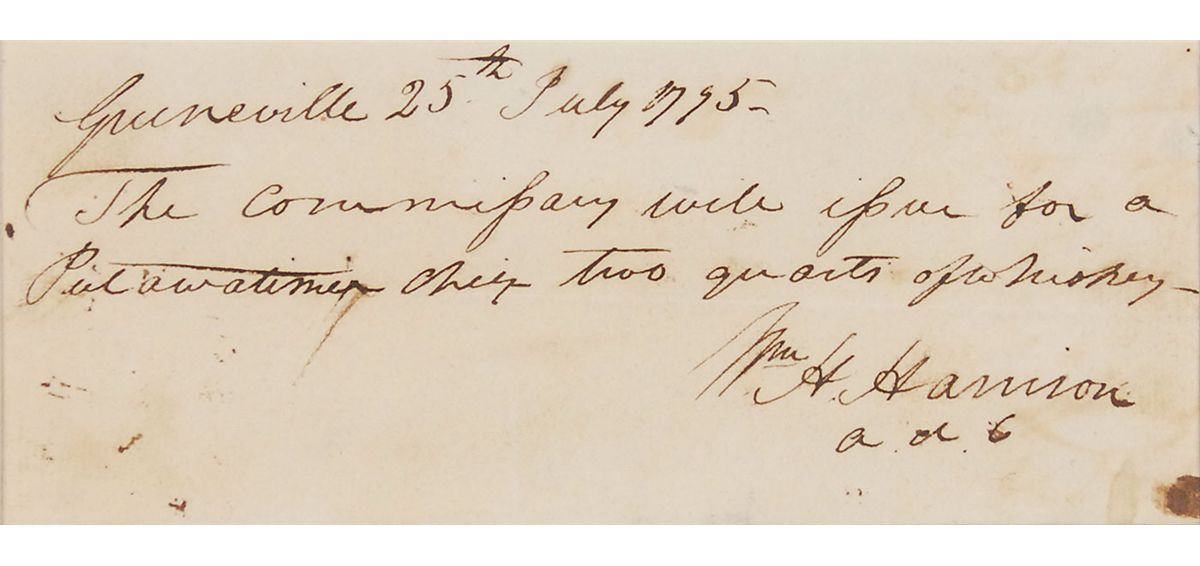 Greeneville 25th July 1795-
The Commissary will issue for a
Putawatimey chief two quarts of whiskey-
Wm H. Harrison
a. d. C